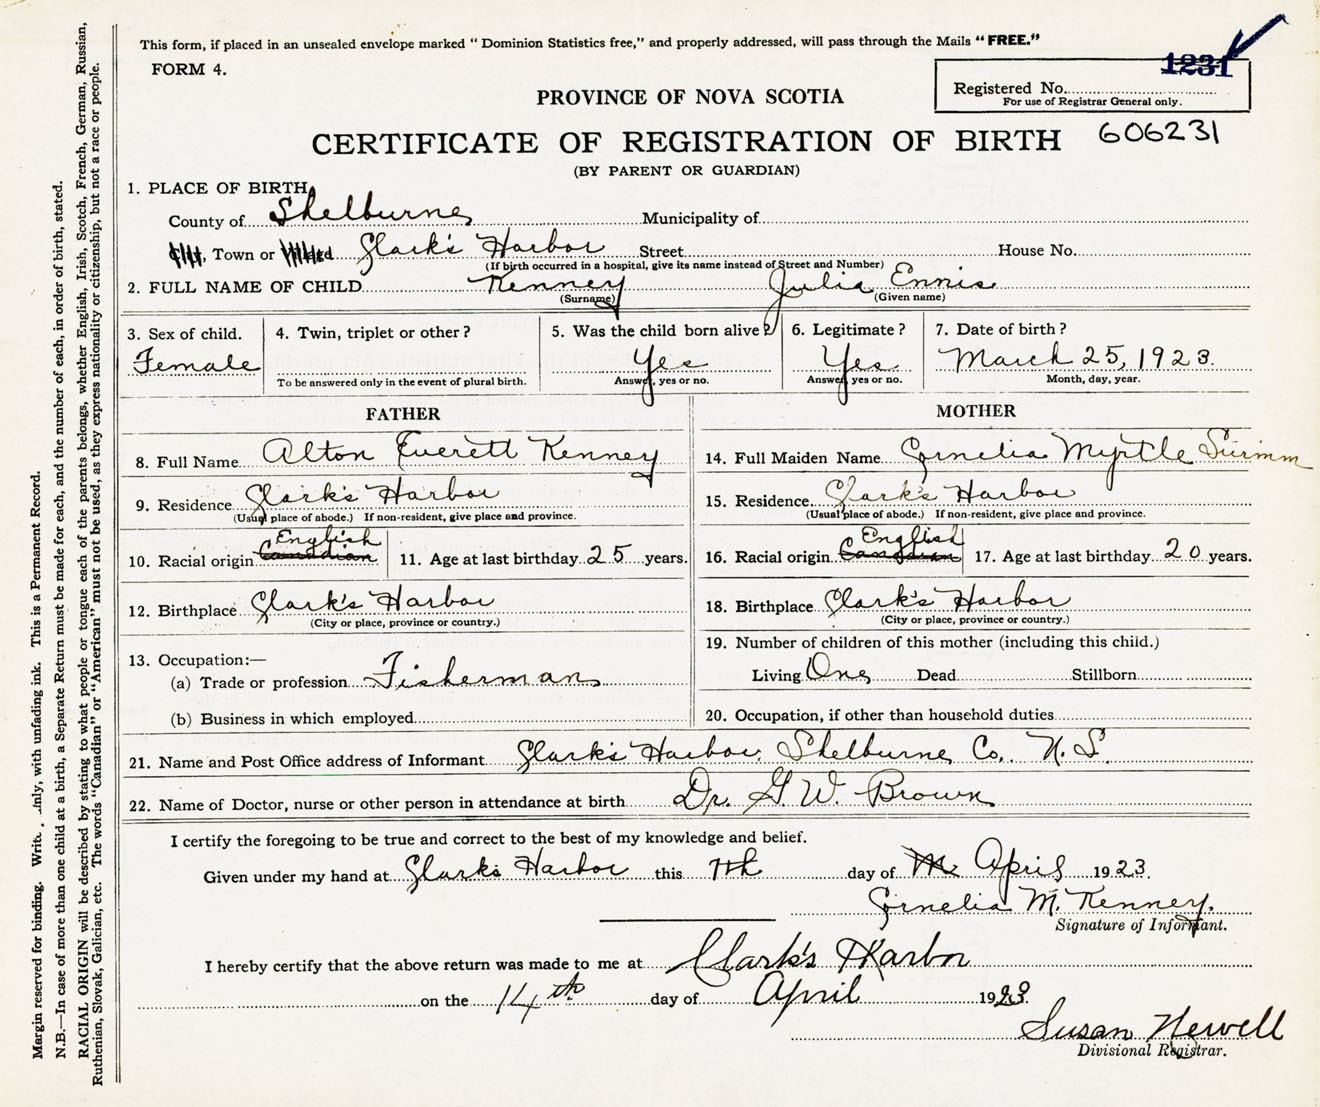 This form, if placed in an unsealed envelope marked “ Dominion Statistics free,” and properly addressed, will pass through the Mails “FREE.”
FORM 4.
1231
Registered No.
For use of Registrar General only.
PROVINCE OF NOVA SCOTIA
CERTIFICATE OF REGISTRATION OF BIRTH 606231
(BY PARENT OR GUARDIAN)
1. PLACE OF BIRTH,
County of Shelburne Municipality of
City, Town or Village Clark's Harbor Street House No.
(If birth occurred in a hospital, give its name instead of Street and Number)
2. FULL NAME OF CHILD Kenney Julia Ennis
(Surname) (Given name)
3. Sex of child. 4. Twin, triplet or other? 5. Was the child born alive? 6. Legitimate? 7. Date of birth?
Female Yes Yes March 25, 1923.
To be answered only in the event of plural birth. Answer, yes or no. Answer, yes or no. Month, day, year.
FATHER MOTHER
8. Full Name Alton Everett Kenney 14. Full Maiden Name Cornelia Myrtle
9. Residence Clark's Harbor 15. Residence Clark's Harbor
(Usual place of abode.) If non-resident, give place and province. (Usual place of abode.) If non-resident, give place and province.
English English
10. Racial origin Canadian 11. Age at last birthday 25 years. 16. Racial origin Canadian 17. Age at last birthday 20 years.
12. Birthplace Clark's Harbor 18. Birthplace Clark's Harbor
(City or place, province or country.) (City or place, province or country.)
19. Number of children of this mother (including this child.)
13. Occupation:—
(a) Trade or profession Fisherman Living One Dead Stillborn
(b) Business in which employed 20. Occupation, if other than household duties
21. Name and Post Office address of Informant Clark's Harbor, Shelburne Co., N. S.
22. Name of Doctor, nurse or other person in attendance at birth Dr. G W. Brown
I certify the foregoing to be true and correct to the best of my knowledge and belief.
Given under my hand at Clark's Harbor this 7th day of M April 1923.
Cornelia M. Kenney.
Signature of Informant.
I hereby certify that the above return was made to me at Clark's Harbor
on the 14th day of April 1923
Susan Newell
Divisional Registrar.
Margin reserved for binding. Write only, with unfading ink. This is a Permanent Record.
N.B.—In case of more than one child at a birth, a Separate Return must be made for each, and the number of each, in order of birth, stated.
RACIAL ORIGIN will be described by stating to what people or tongue each of the parents belongs, whether English, Irish, Scotch, French, German, Russian,
Ruthenian, Slovak, Galician, etc. The words “Canadian” or “American” must not be used, as they express nationality or citizenship, but not a race or people.